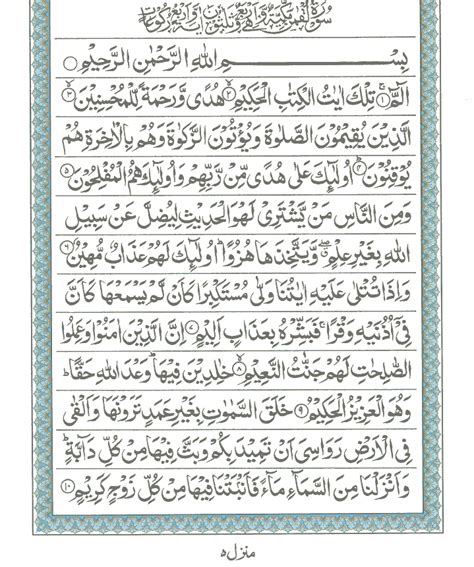 سُوْرَةُ لُقْمٰنَ مَكِّيَّةٌ وَّهِيَ اَرْبَعٌ وَّثَلٰثُوْنَ اٰيَةً وَّاَرْبَعُ رُكُوْعَاتٍ
بِسْمِ اللهِ الرَّحْمٰنِ الرَّحِيْمِ ○
الٓمّٓ ۚ ۝۱ تِلْكَ اٰيٰتُ الْكِتٰبِ الْحَكِيْمِ ۝۲ هُدًى وَّرَحْمَةً لِّلْمُحْسِنِيْنَ ۝۳
الَّذِيْنَ يُقِيْمُوْنَ الصَّلٰوةَ وَيُؤْتُوْنَ الزَّكٰوةَ وَهُمْ بِالْاٰخِرَةِ هُمْ
يُوْقِنُوْنَ ۝۴ اُولٰٓئِكَ عَلٰى هُدًى مِّنْ رَّبِّهِمْ وَاُولٰٓئِكَ هُمُ الْمُفْلِحُوْنَ ۝۵
وَمِنَ النَّاسِ مَنْ يَّشْتَرِيْ لَهْوَ الْحَدِيْثِ لِيُضِلَّ عَنْ سَبِيْلِ
اللهِ بِغَيْرِ عِلْمٍ ۖ وَّيَتَّخِذَهَا هُزُوًا ؕ اُولٰٓئِكَ لَهُمْ عَذَابٌ مُّهِيْنٌ ۝۶
وَاِذَا تُتْلٰى عَلَيْهِ اٰيٰتُنَا وَلّٰى مُسْتَكْبِرًا كَاَنْ لَّمْ يَسْمَعْهَا كَاَنَّ
فِيْٓ اُذُنَيْهِ وَقْرًا ۚ فَبَشِّرْهُ بِعَذَابٍ اَلِيْمٍ ۝۷ اِنَّ الَّذِيْنَ اٰمَنُوْا وَعَمِلُوا
الصّٰلِحٰتِ لَهُمْ جَنّٰتُ النَّعِيْمِ ۝۸ خٰلِدِيْنَ فِيْهَا ؕ وَعْدَ اللهِ حَقًّا ؕ
وَهُوَ الْعَزِيْزُ الْحَكِيْمُ ۝۹ خَلَقَ السَّمٰوٰتِ بِغَيْرِ عَمَدٍ تَرَوْنَهَا وَاَلْقٰى
فِي الْاَرْضِ رَوَاسِيَ اَنْ تَمِيْدَ بِكُمْ وَبَثَّ فِيْهَا مِنْ كُلِّ دَآبَّةٍ ؕ
وَاَنْزَلْنَا مِنَ السَّمَآءِ مَآءً فَاَنْۢبَتْنَا فِيْهَا مِنْ كُلِّ زَوْجٍ كَرِيْمٍ ۝۱۰
منزل ۵